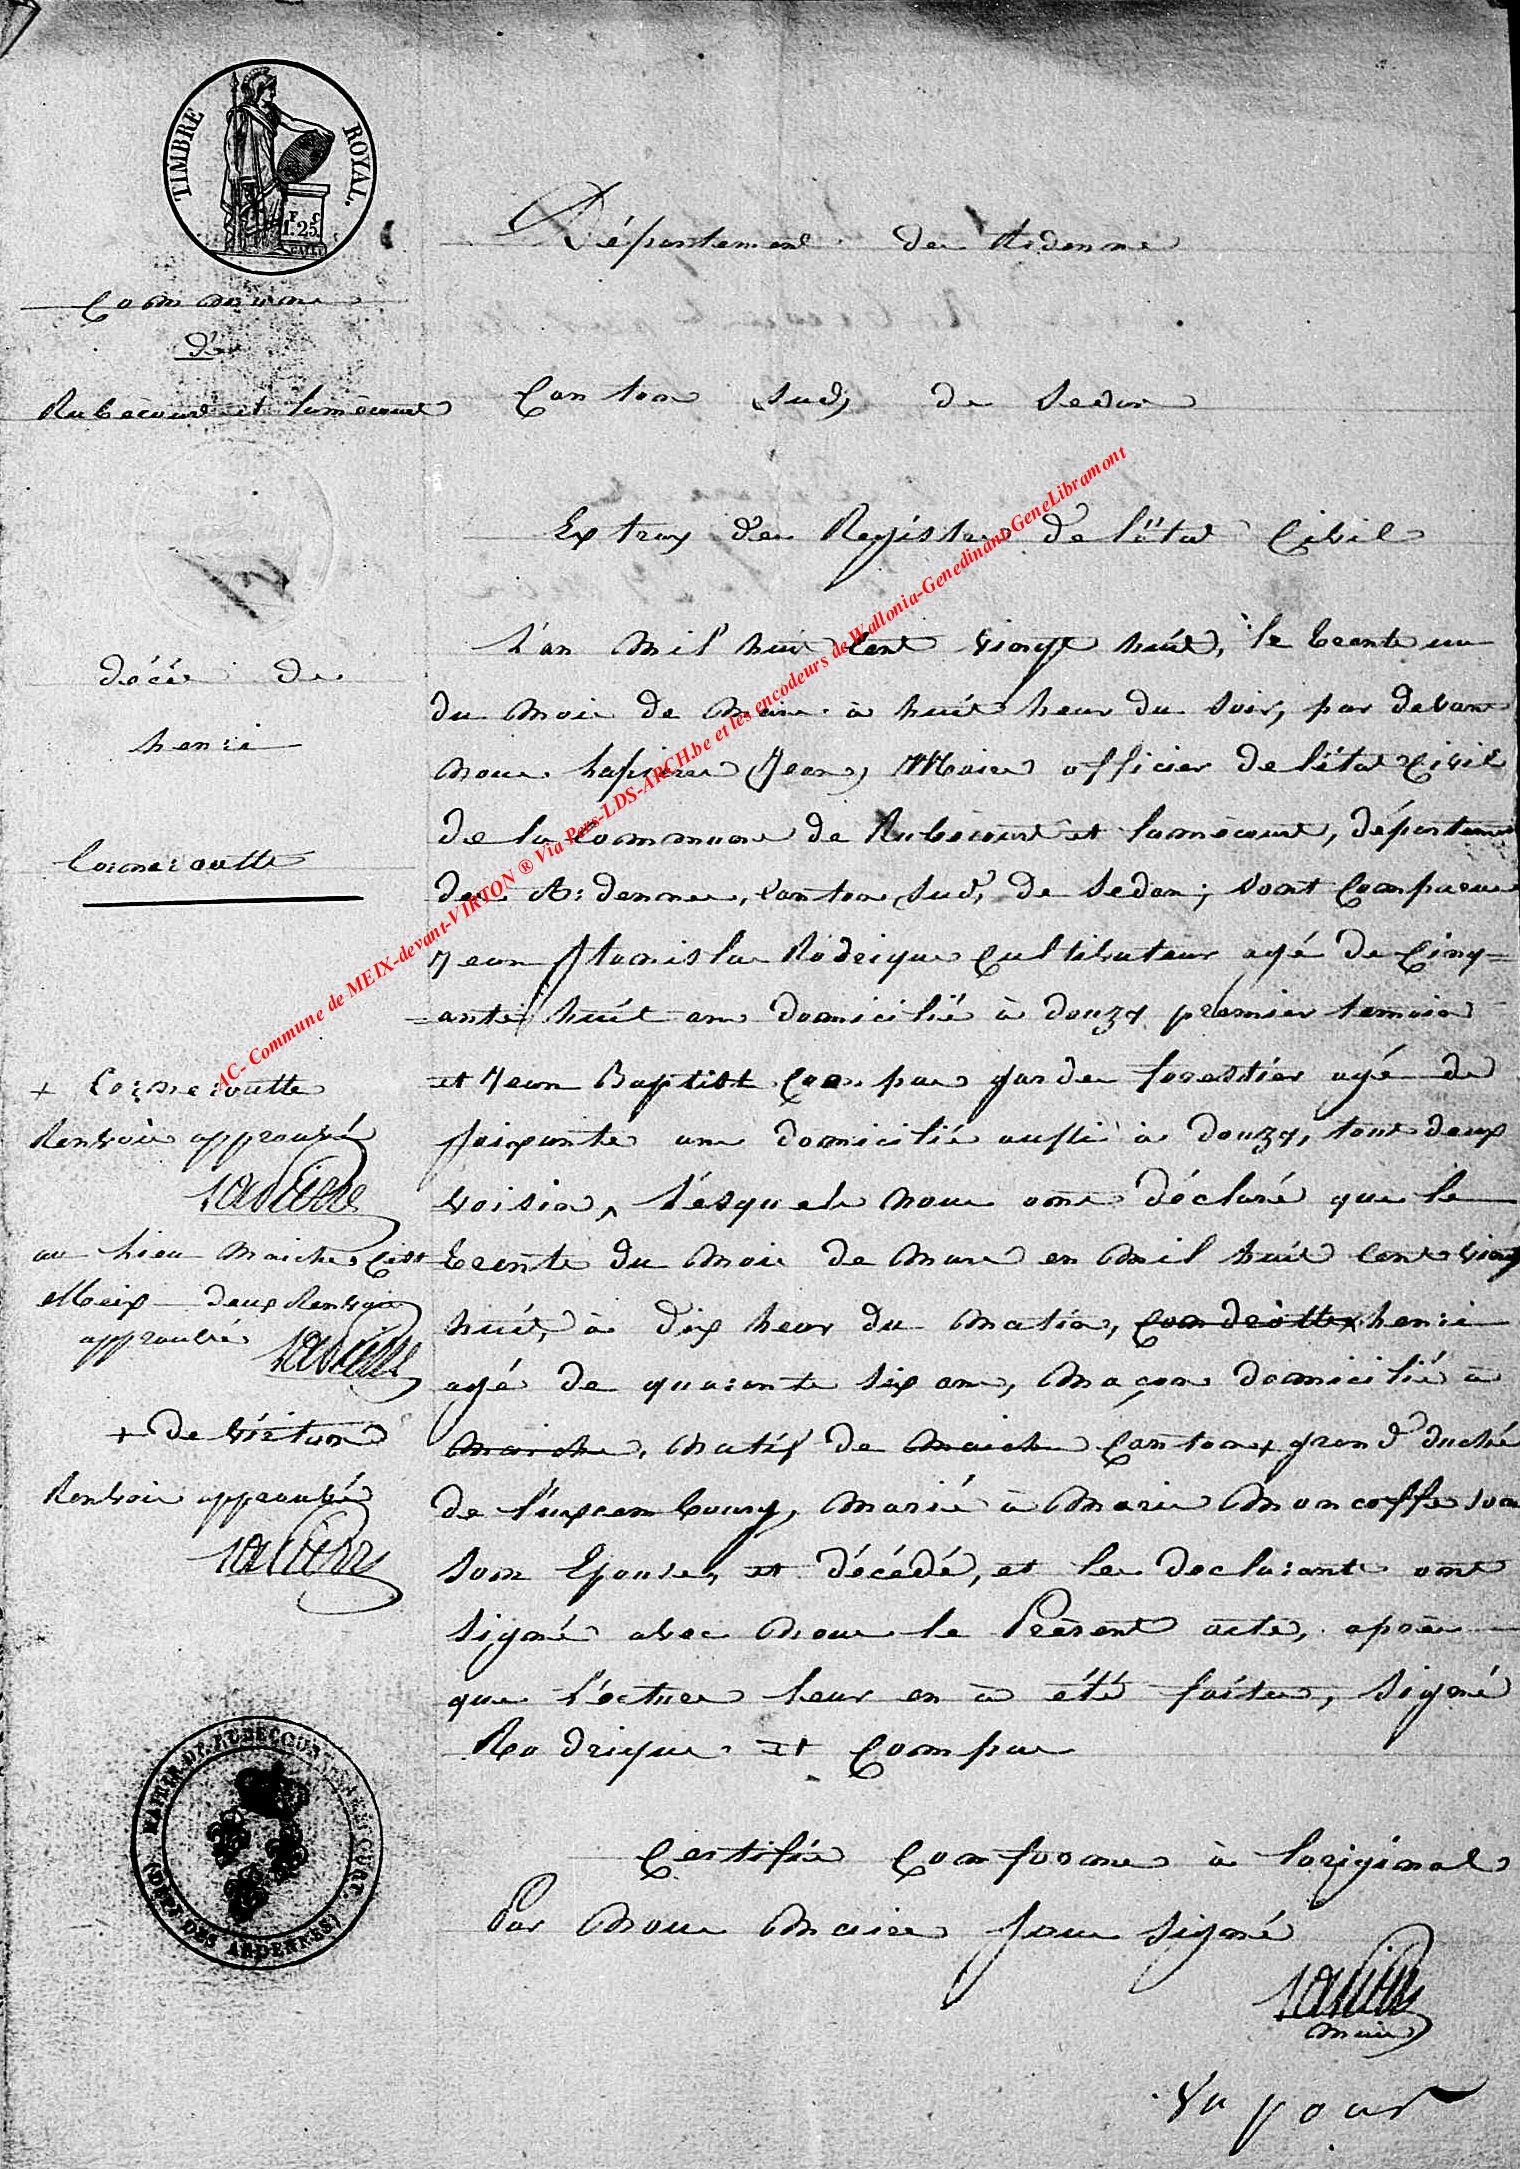 TIMBRE ROYAL.
F C
1.25
Commune
de
Rubécourt et Lamécourt
décés de
henri
Cornerotte
+ Cornerotte
Renvoie approuvé
au lieu Maiche, c'est
Meix deux Renvoie
approuvée
+ de virton
Renvoie approuvée
MAIRIE DE RUBECOURT LAMECOURT
(DEPT DES ARDENNES)
Département des Ardenne
Canton Sud, de Sedan
Extrax des Registre de l'état Civil
L'an mil huit cent vingt huit, le trente un
du mois de Mars à huit heur du soir, par devant
nous Lapierre Jean, Maire officier de l'état Civil
de la Commune de Rubécourt et Lamécourt, département
des Ardennes, Canton Sud, de Sedan; sont Comparus
Jean Stanislas Rodrique Cultivateur agé de Cinq=
=ante huit ans domicilié à douzy premier temoin
et Jean Baptiste Compas garde forestier agé de
soixante ans domicilié aussi à douzy, tous deux
voisin, lésquels nous ont déclaré que le
trente du mois de Mars en mil huit cent vingt
huit, à dix heur du matin, henri
agé de quarante six ans, maçon domicilié à
Marche, natif de Maiche Canton + grand duché
de Luxembourg, marié à Marie Moncoffe
son Epouse, est décédé, et les declarants ont
signé avec nous le Présent acte, après
que lécture leur en à été faite, signé
Rodrique et Compas
Certifié Conforme à loriginal
Par nous Maire sous signé
Maire
Vu pour
AC- Commune de MEIX-devant-VIRTON ® Via Pers-LDS-ARCH.be et les encodeurs de Wallonia-Genedinant-GeneLibramont